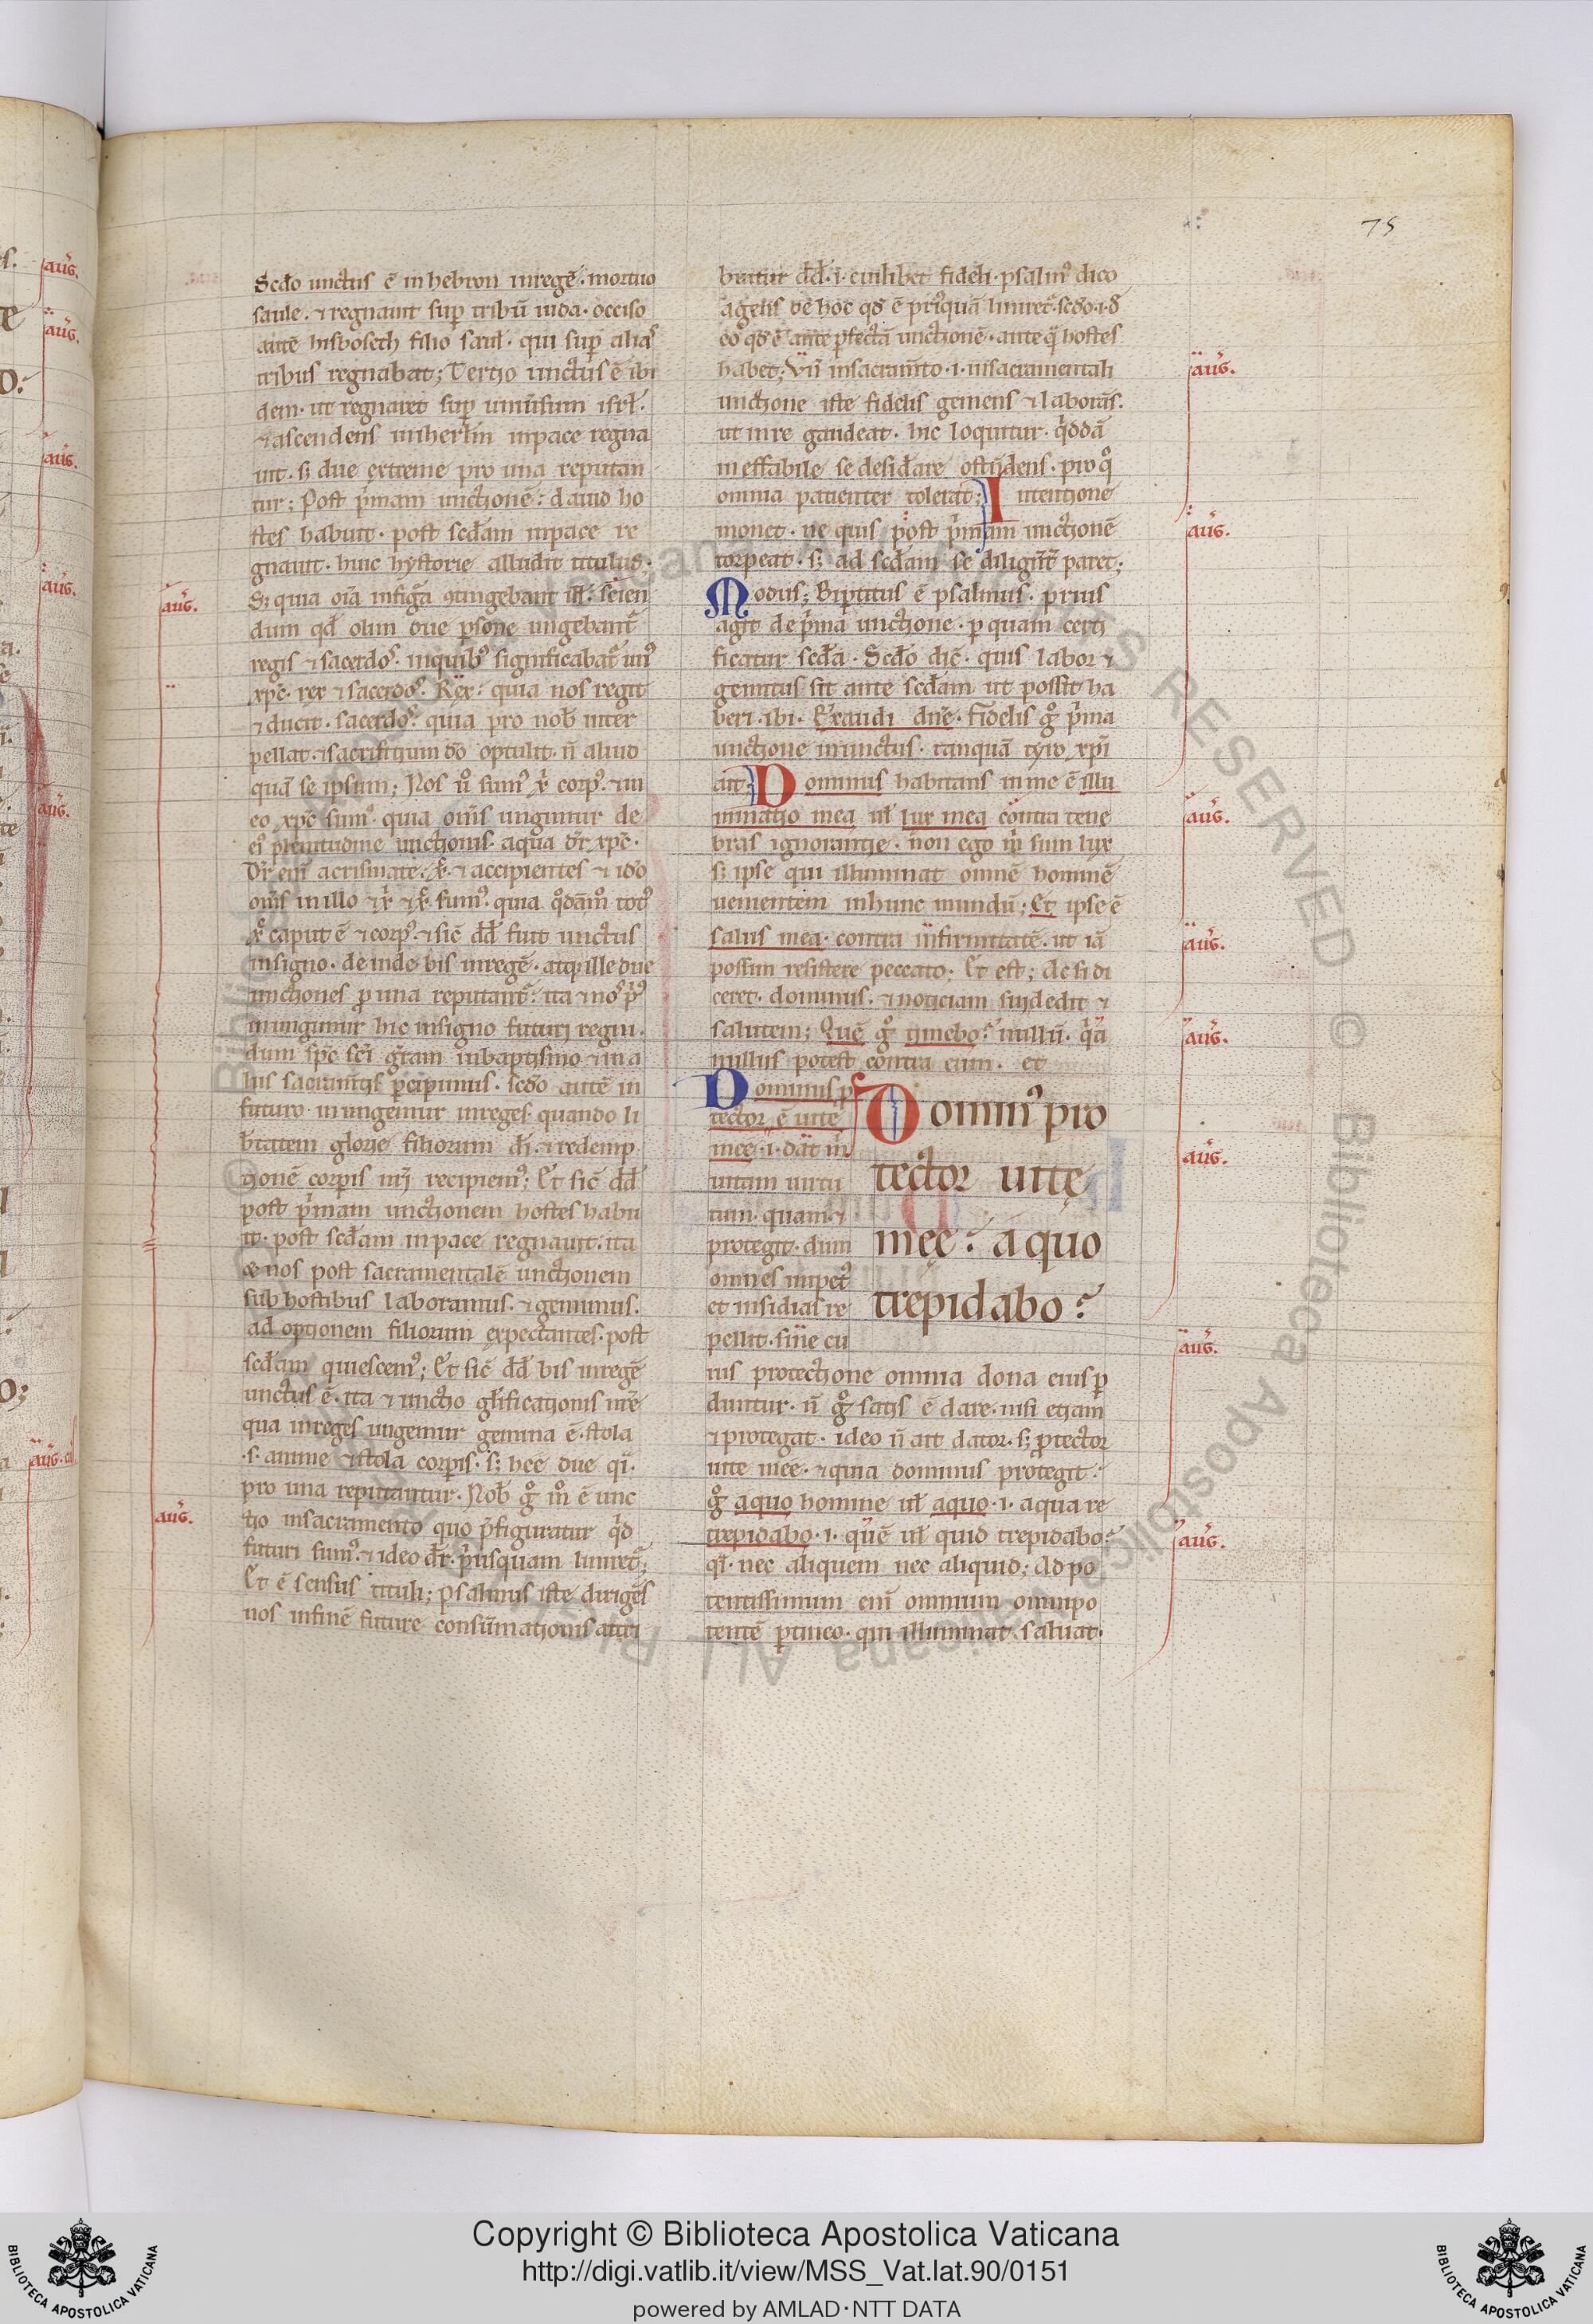 75
Scdo unctus ē in hebron in regē. mortuo
saule. ⁊ regnauit sup tribū iuda. occiso
autē hisboseth filio saul. qui sup alias
tribus regnabat; Tertio unctus ē ibi
dem. ut regnaret sup uniuersum isrl.
⁊ ascendens in hierlm in pace regna
uit. si due extreme pro una reputan
tur; Post p'mam unctionē: dauid ho
stes habuit. post scdam in pace re
gnauit. huic hystorie alludit titulus.
Sꝫ quia oīa in figura ꝯtingebant ill'. scien
dum qd olim due psone ungebant̄
regis ⁊ sacerdos. in quibꝰ significabat̄ unꝰ
xpc̄. rex ⁊ sacerdos. Rex: quia nos regit
⁊ ducit. sacerdos. quia pro nob inter
pellat. ⁊ sacrificium do optulit. ñ aliud
quā se ipsum; Nos ů sumꝰ xp̄i corpꝰ. ⁊ in
eo xpc̄ sumꝰ. quia om̄s ungimur de
eiꝰ plenitudine unctionis. a qua dr̄ xpc̄.
Dr̄ eni a crismate. xp̄c. ⁊ accipientes ⁊ ido
om̄s in illo ⁊ xp̄i ⁊ xp̄c sumꝰ. quia qdāmo totꝰ
xp̄c caput ē ⁊ corpꝰ. ⁊ sic dd fuit unctus
in signo. deinde bis in regē. atqꝫ ille due
unctiones pro una reputant̄. ita ⁊ nos pꝰ
inungimur hic in signo futuri regni.
dum spc̄ sci gr̄am in baptismo ⁊ in a
liis sacram̄tis percipimus. scdo autē in
futuro inungemur in reges. quando li
b'tatem glorie filiorum di. ⁊ redemp
tionē corpis nr̄i recipiemꝰ; Et sic dd
post p'mam unctionem hostes habu
it. post scdam in pace regnauit. ita
⁊ nos post sacramentalē unctionem
sub hostibus laboramus. ⁊ gemimus.
adoptionem filiorum expectantes. post
scdam quiescemꝰ; Et sic dd bis in regē
unctus ē. ita ⁊ unctio glificationis nr̄e
qua in reges ungemur gemina ē. stola
.s. anime ⁊ stola corpis. sꝫ hee due qi.
pro una reputantur. Nob g° m° ē unc
tio in sacramento quo p̄figuratur q'd
futuri sumꝰ. ⁊ ideo dr̄. p'usquam liniret̄;
Et ē sensus tituli; psalmus iste dirigēs
nos in finē future consūmationis attri
buitur dd. i. cuilibet fideli. psalmꝰ dico
agens de hoc qd ē priꝰquā liniret̄. scdo. i. d
eo qd ē ante pfectā unctionē. ante q hostes
habet; Vn in sacram̄to. i. in sacramentali
unctione iste fidelis gemens ⁊ laborās.
ut in re gaudeat. hic loquitur. q'ddā
ineffabile se desidare ostēdens. pro qo
omnia patienter tolerat; Intentione
monet. ne quis post p'mam unctionē
torpeat. sꝫ ad scdam se diligēt' paret;
Modus; Bipartitus ē psalmus. prius
agit de p'ma unctione. p quam certi
ficatur scda. Scdo dic̄. quis labor ⁊
gemitus sit ante scdam ut possit ha
beri. ibi. Exaudi dne. Fidelis g° p'ma
unctione inunctus. tanquā tyro xpi
ait; Dominus habitans in me ē illu
minatio mea ul lux mea contra tene
bras ignorantie. non ego m' sum lux
sꝫ ipse qui illuminat omnē hominē
uenientem in hunc mundū; Et ipse ē
salus mea. contra infirmitatē. ut iā
possim resistere peccato. Et est; Ac si di
ceret. dominus. ⁊ noticiam sui dedit ⁊
salutem; Quē g° timebo? nullū. q'a
nullus potest contra eum. et
Dominus p
tector ē uite
mee. i. dat m'
uitam uirtu
tum. quam ⁊
protegit. dum
omnes impetꝰ
et insidias re
pellit. sine cu
Dominꝰ pro
tector uite
mee: a quo
trepidabo?
ius protectione omnia dona eius p
duntur. ñ g° satis ē dare. nisi etiam
⁊ protegat. ideo ñ ait dator. sꝫ ptector
uite mee. ⁊ quia dominus protegit.
g° a quo homine ul a quo. i. a qua re
trepidabo. i. quē ul quid trepidabo?
ql. nec aliquem nec aliquid; Ad po
tentissimum eni omnium omnipo
tentē ptineo. qui illuminat. saluat.
aug.
aug.
aug.
aug.
aug.
aug.
aug.
aug.
aug.
aug.
Copyright © Biblioteca Apostolica Vaticana
http://digi.vatlib.it/view/MSS_Vat.lat.90/0151
powered by AMLAD·NTT DATA
BIBLIOTECA APOSTOLICA VATICANA
BIBLIOTECA APOSTOLICA VATICANA